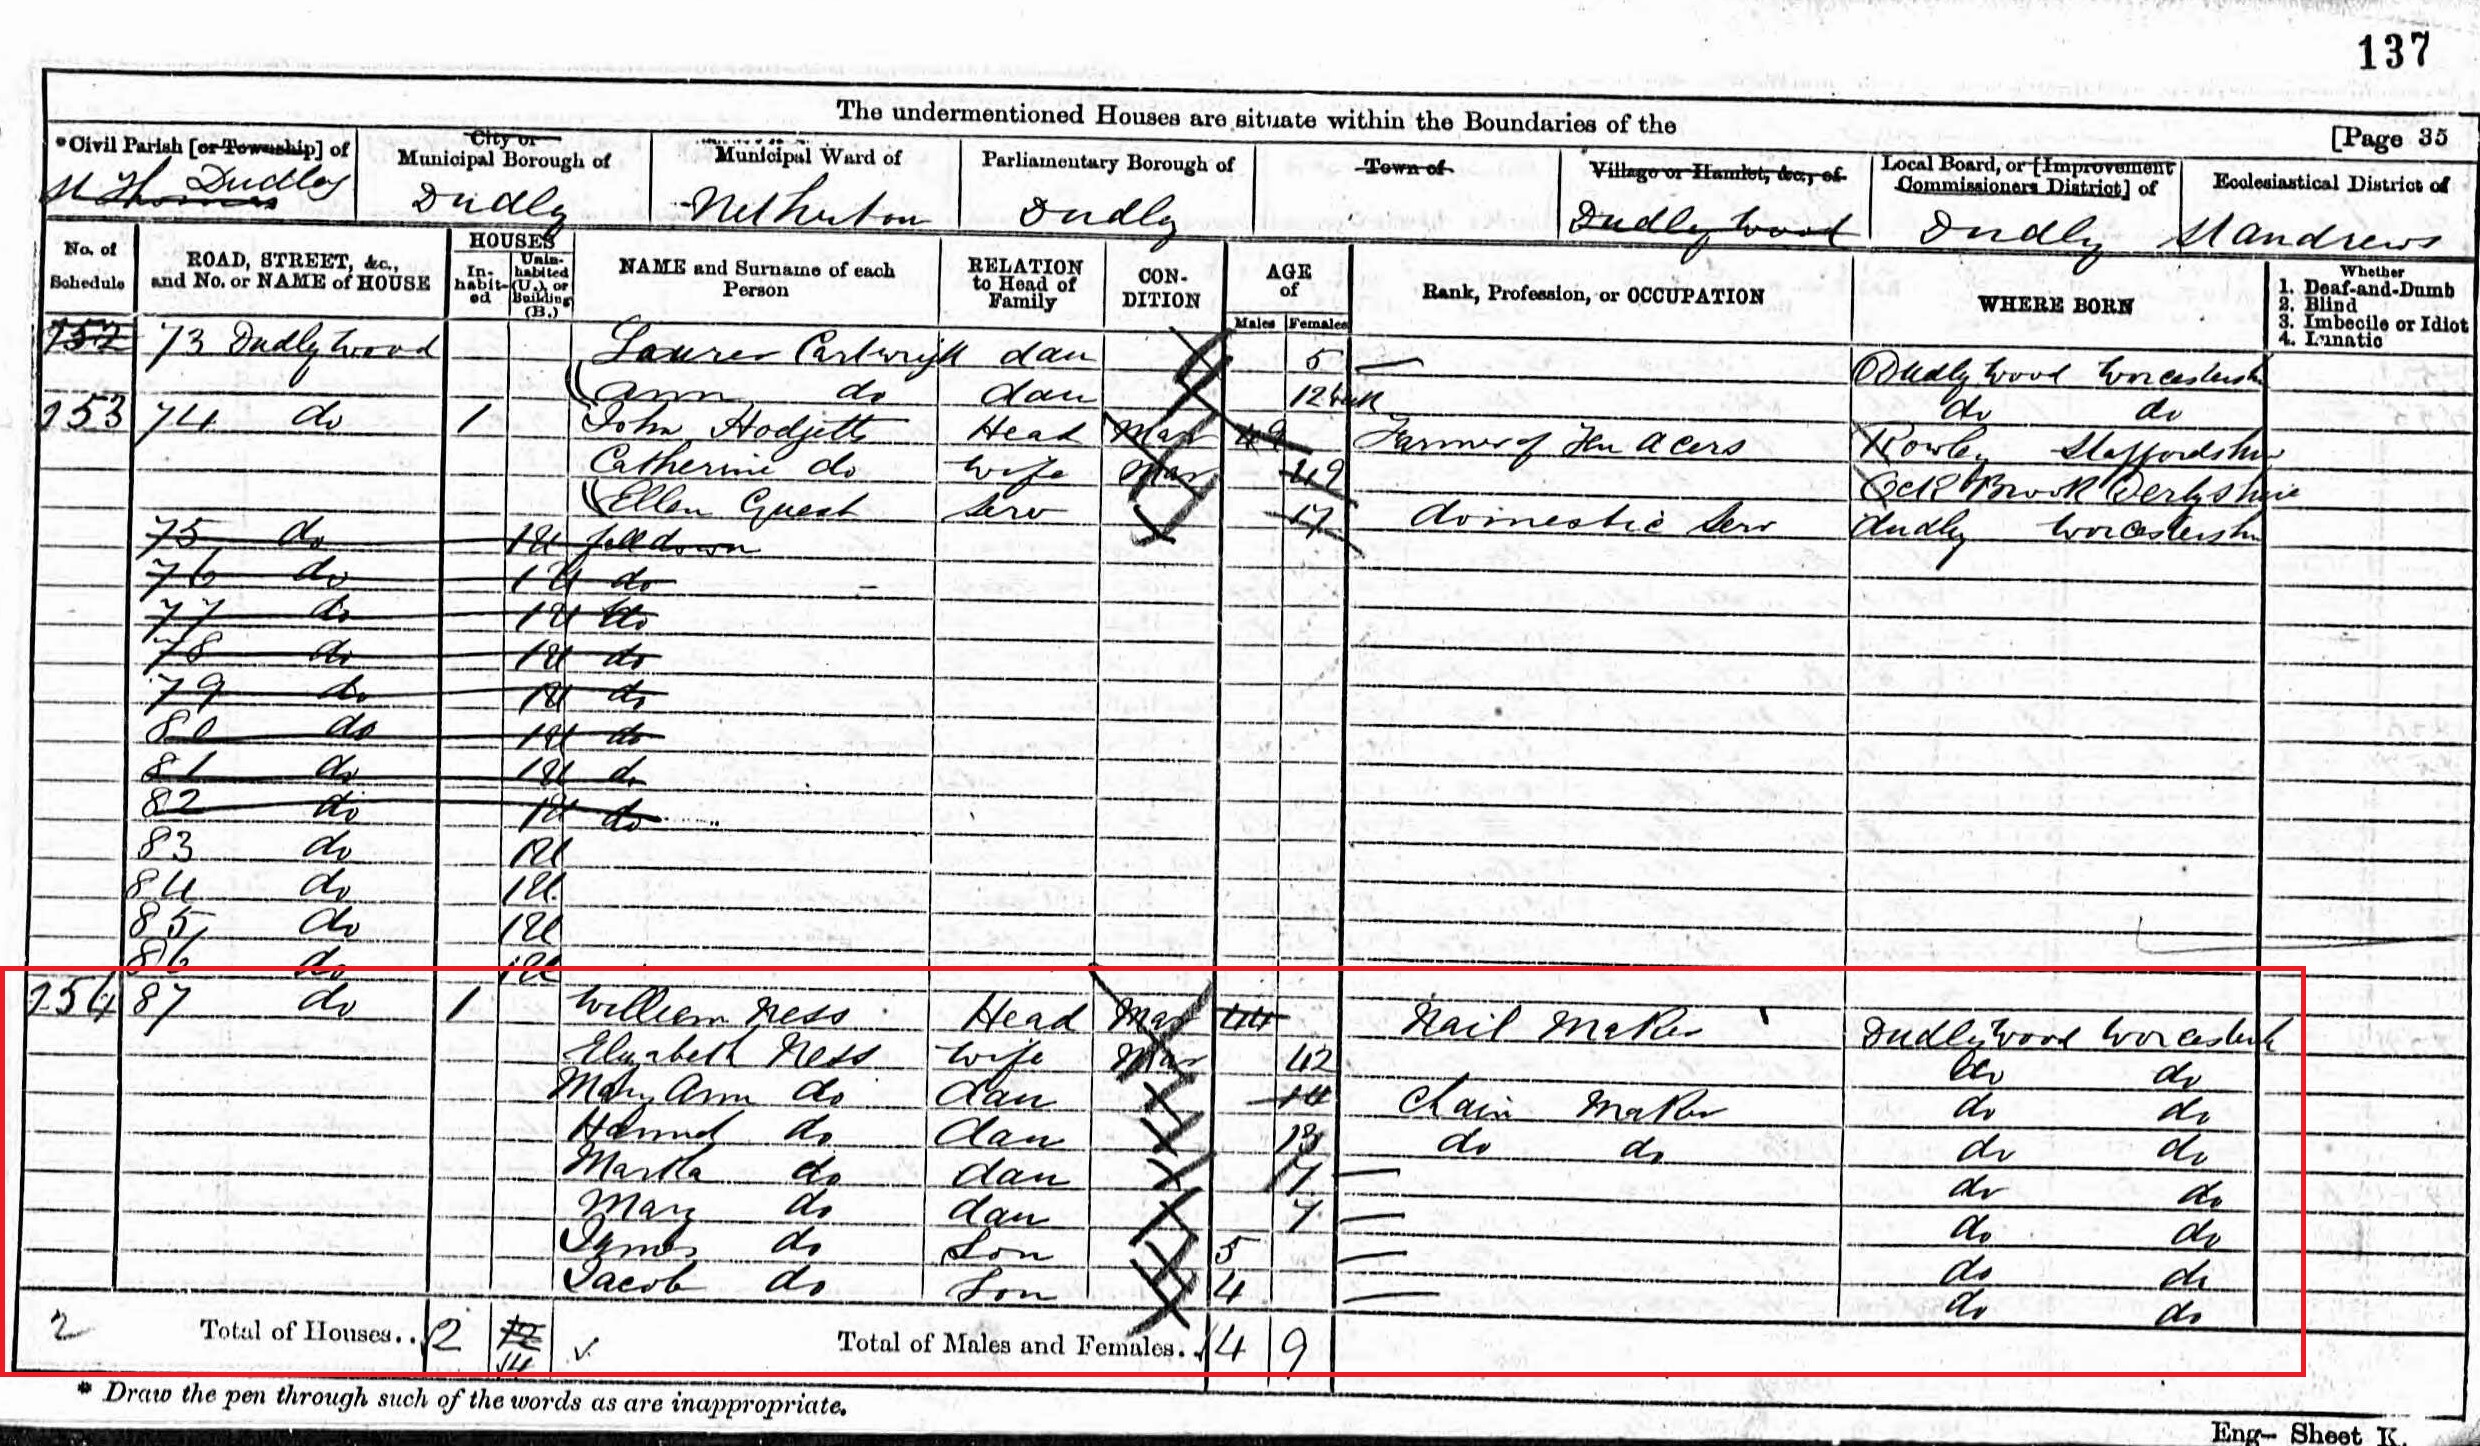 137
The undermentioned Houses are situate within the Boundaries of the
[Page 35
*Civil Parish [or Township] of
City or Municipal Borough of
Municipal Ward of
Parliamentary Borough of
Town of
Village or Hamlet, &c., of
Local Board, or [Improvement Commissioners District] of
Ecclesiastical District of
St Thomas Dudley
Dudly
Netherton
Dudly
Dudly wood
Dudly
St andrews
No. of Schedule
ROAD, STREET, &c., and No. or NAME of HOUSE
HOUSES
In-habit-ed
Unin-habited (U.), or Building (B.)
NAME and Surname of each Person
RELATION to Head of Family
CON-DITION
AGE of
Males Females
Rank, Profession, or OCCUPATION
WHERE BORN
Whether
1. Deaf-and-Dumb
2. Blind
3. Imbecile or Idiot
4. Lunatic
152 73 Dudly wood Cartwright dau 5 Dudly wood Worcestersh
Ann do dau do do
153 74 do 1 John Hodgetts Head Mar 49 Farmer of Ten acers Rowley Staffordshire
Catherine do wife Mar 49 Brook Derbyshire
Ellen Guest Serv 17 domestic Serv dudley Worcestersh
75 do 1U fell down
76 do 1U do
77 do 1U do
78 do 1U do
79 do 1U do
80 do 1U do
81 do 1U do
82 do 1U do
83 do 1U
84 do 1U
85 do 1U
86 do 1U
154 87 do 1 William Ness Head Mar 44 Nail Maker Dudly wood Worcestersh
Elizabeth Ness wife Mar 42 do do
Mary Ann do dau 14 Chain Maker do do
Hannah do dau 13 do do do do
Martha do dau do do
Mary do dau 7 do do
James do Son 5 do do
Jacob do Son 4 do do
2 Total of Houses.. 2 12 14 Total of Males and Females.. 4 9
* Draw the pen through such of the words as are inappropriate.
Eng- Sheet K.